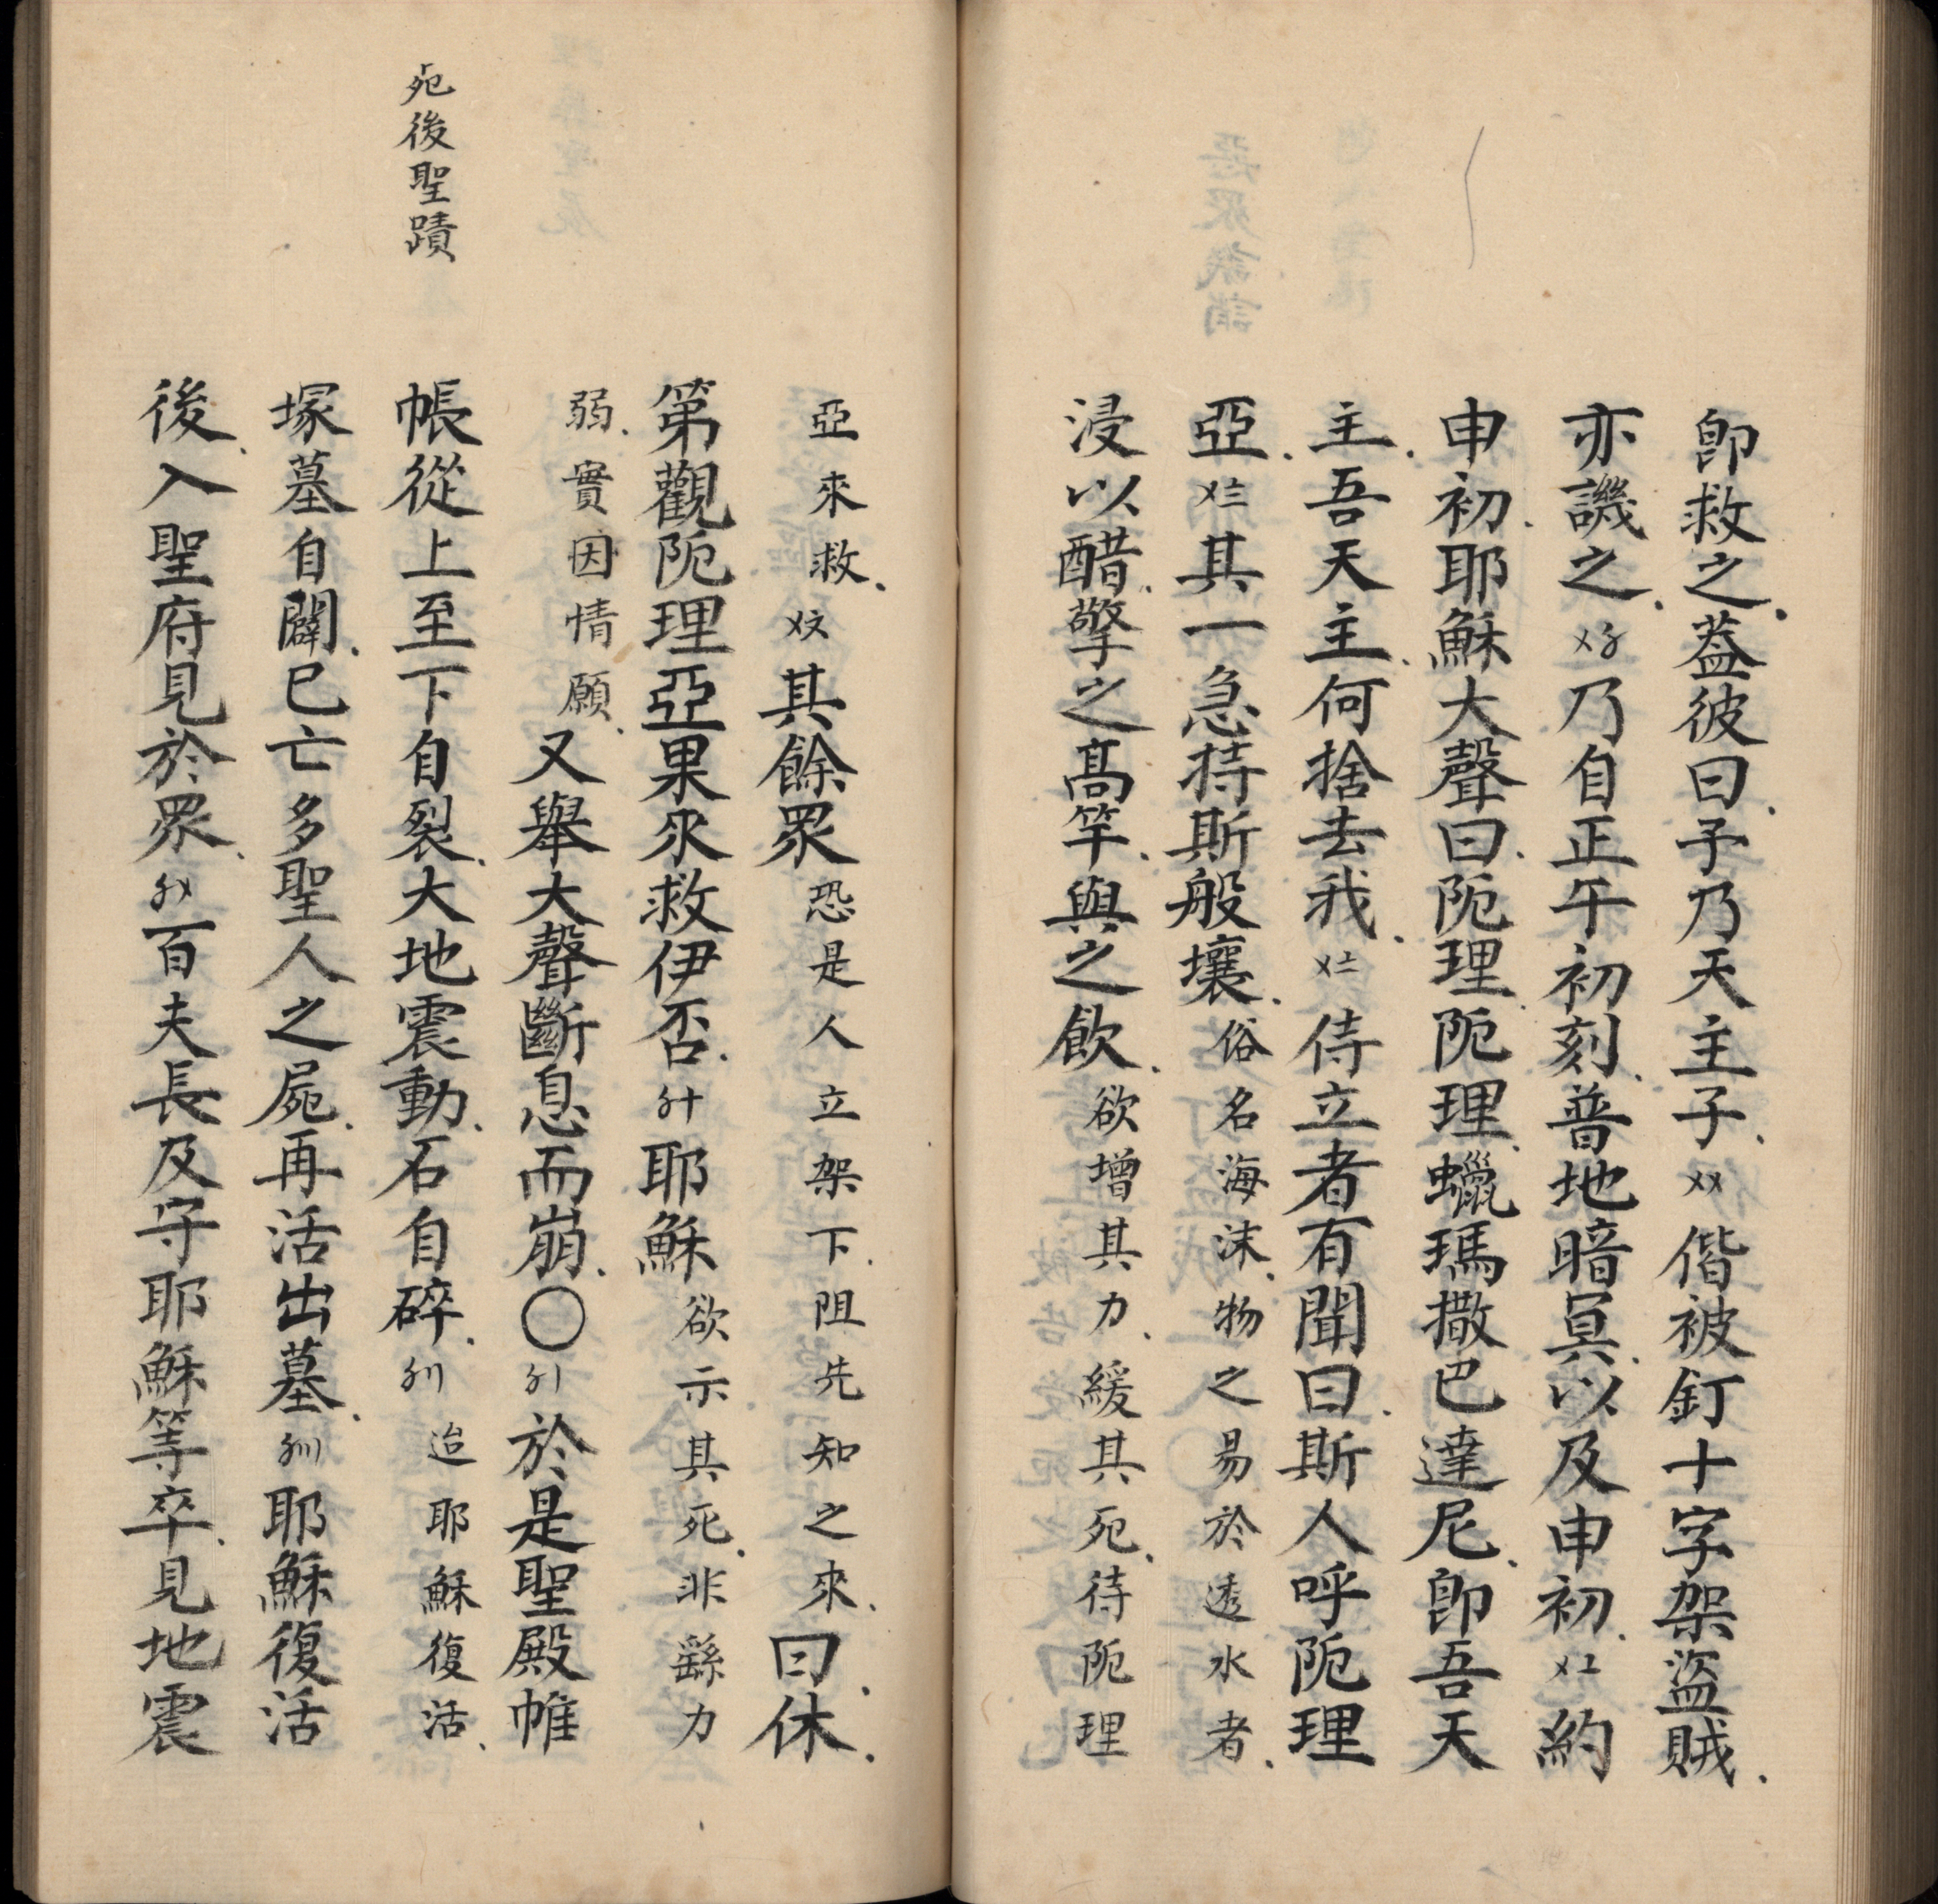 即救之蓋彼曰予乃天主子〤〤偕被釘十字架盜賊
亦譏之〤〥乃自正午初刻普地暗冥以及申初〤〦約
申初耶穌大聲曰阨理阨理蠟瑪撒巴達尼即吾天
主吾天主何捨去我〤〧侍立者有聞曰斯人呼阨理
亞〤〨其一急持斯般壤俗名海沫物之易於透水者
浸以醋擎之高竿與之飲欲增其力緩其死待阨理
亞來救〤〩其餘眾恐是人立架下阻先知之來曰休
第觀阨理亞果來救伊否〥十耶穌欲示其死非繇力
弱實因情願又舉大聲斷息而崩〇〥〡於是聖殿帷
死後聖蹟
帳從上至下自裂大地震動石自碎〥〢迨耶穌復活
塚墓自闢已亡多聖人之屍再活出墓〥〣耶穌復活
後入聖府見於眾〥〤百夫長及守耶穌等卒見地震